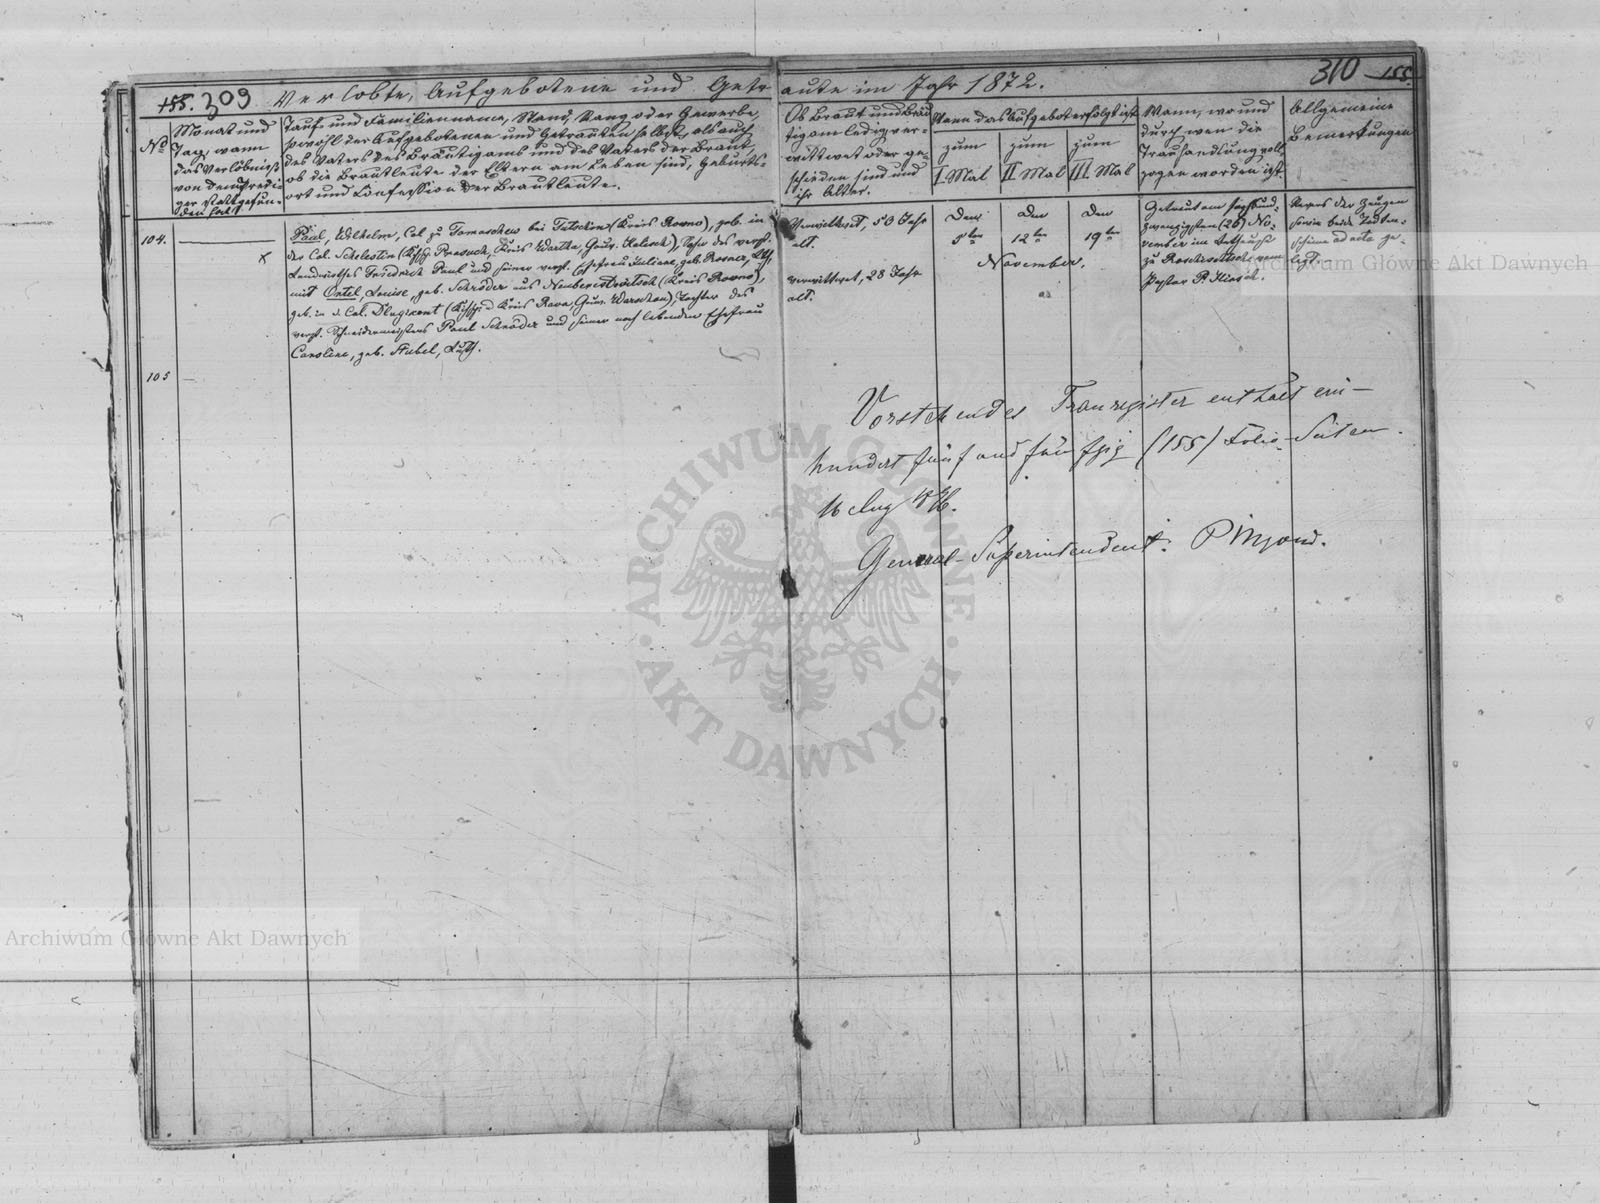 155. 309 Verlobte, Aufgebotene und Getr aute im Jahr 1872. 310 155.
No
Monat und
Tag, wann
das Verlöbniß
von dem Predi-
ger stattgefun-
den hat.
Tauf- und Familienname, Stand, Rang oder Gewerbe,
sowohl der Aufgebotenen und Getrauten selbst, als auch
des Vaters des Bräutigams und des Vaters der Braut,
ob die Brautleute der Eltern am Leben sind, Geburts-
ort und Confession der Brautleute.
Ob Braut und Bräu
tigam ledig, ver-
wittwet oder ge-
schieden sind und
ihr Alter.
Wann das Aufgebot erfolgt ist
zum
I. Mal
zum
II Mal
zum
III. Mal
Wann, wo und
durch wen die
Trauhandlung voll-
zogen worden ist
Allgemeine
Bemerkungen
104.
Paul, Wilhelm, Col. zu Tomaschew bei Tutschin (Kreis Rowno), geb. in
der Col. (Kreis Wartha, Gouv. Kalisch), Sohn des verst.
Landwirthes Friedrich Paul und seiner verst. Ehefrau Juliane, geb. Luth.
mit Ortel, Louise, geb. Schröder aus (Kreis Rowno),
geb. in d. Col. Dlugikont (Kreis Rawa, Gouv. Warschau), Tochter des
verst. Schneidermeisters Paul Schröder und seiner noch lebenden Ehefrau
Caroline, geb. Luth.
Verwittwet, 50 Jahr
alt.
verwittwet, 28 Jahr
alt.
Den
5ten
Den
12ten
Den
19ten
November.
Getraut am
zwanzigsten (26) No-
vember im Bethause
zu Roschischtsche vom
Pastor
der Zeugen
sowie beide
scheine ad acta ge-
legt.
105
Vorstehendes Trauregister enthält ein-
hundert fünf und fünfzig (155) Folio-Seiten.
16 Aug
General-Superintendent.
ARCHIWUM GŁÓWNE
AKT DAWNYCH
Archiwum Główne Akt Dawnych
Archiwum Główne Akt Dawnych